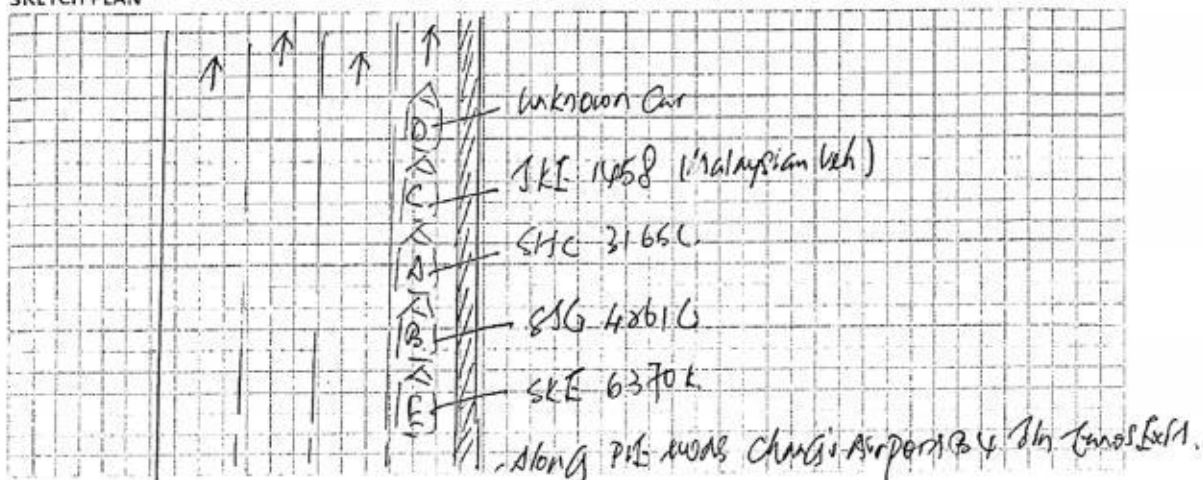 SKETCH PLAN
D
unknown Car
C
JKE 1458 (Malaysian Veh)
A
SHC 3165C
B
E
SKE 6370K
Along PIE twds Changi Airport B4 Jln Eunos Exit.